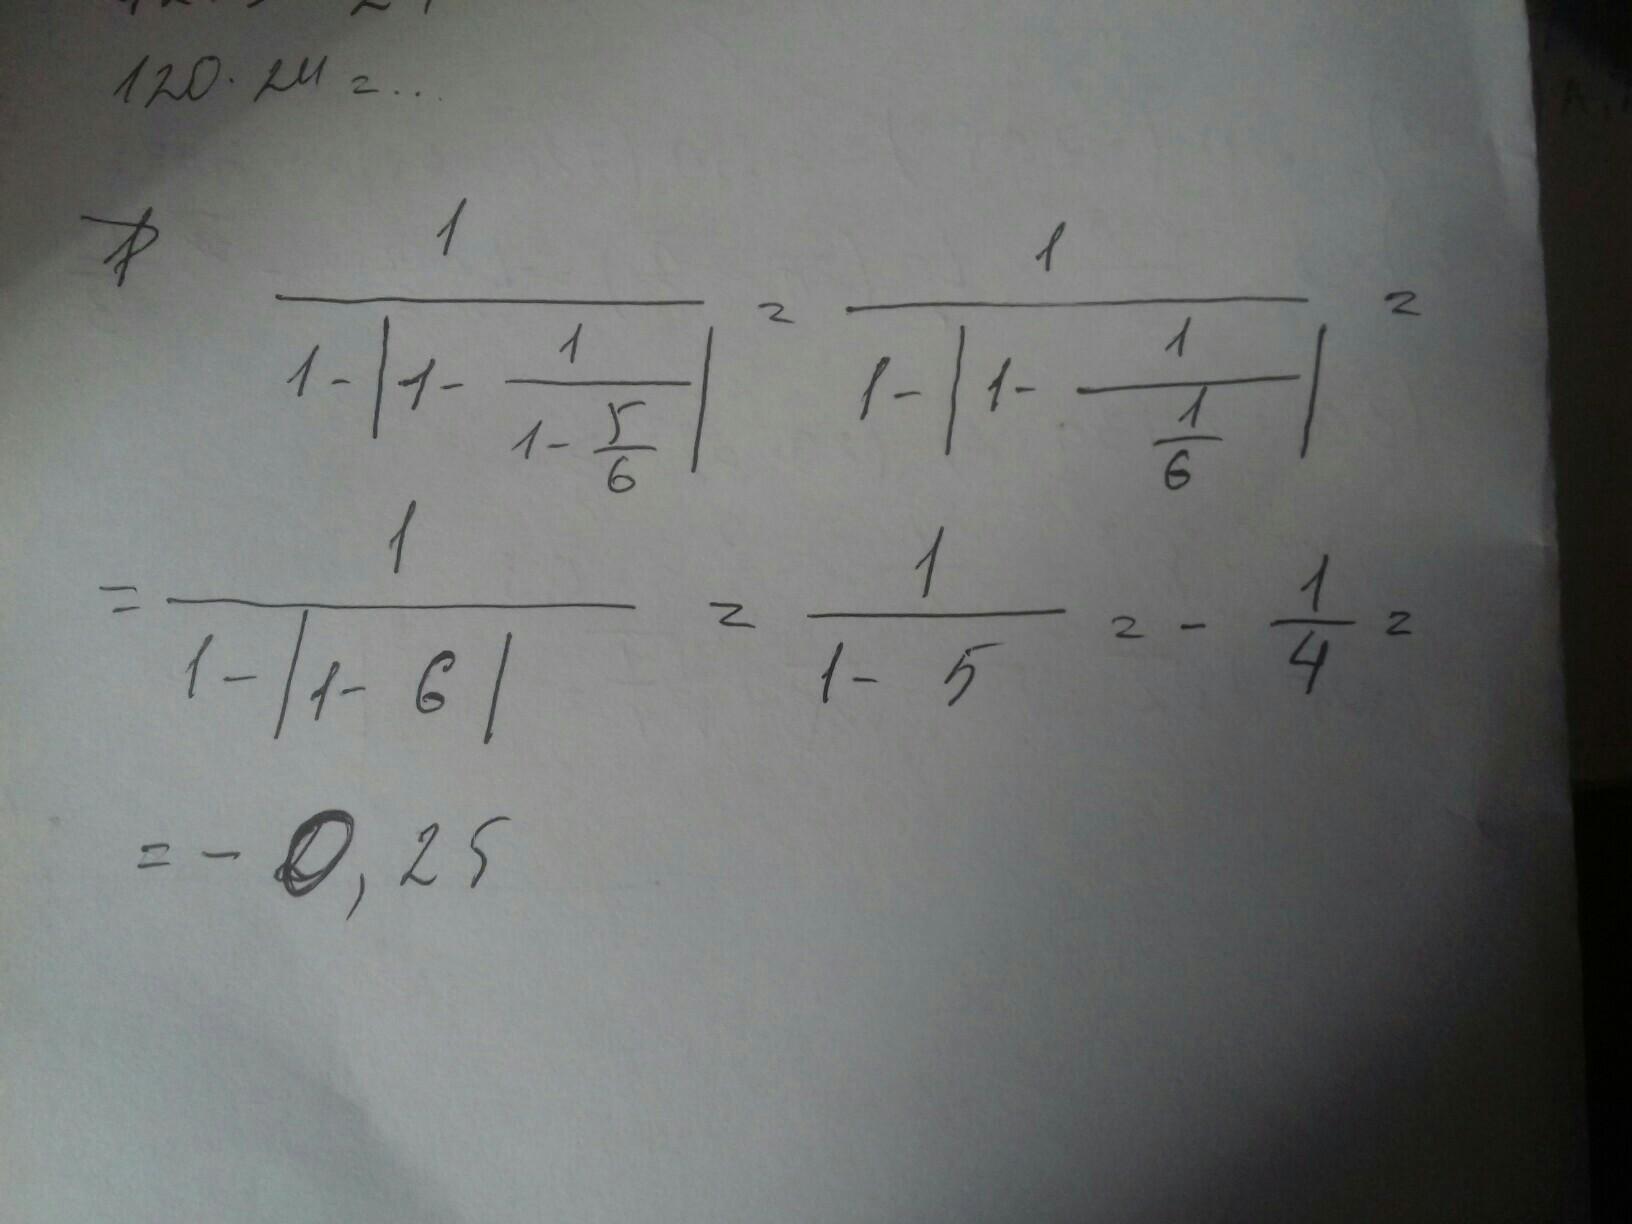 120·24=...
1 / (1-|1- 1/(1-5/6)|) = 1 / (1-|1- 1/(1/6)|) =
= 1 / (1-|1-6|) = 1 / (1-5) = - 1/4 =
=-0,25